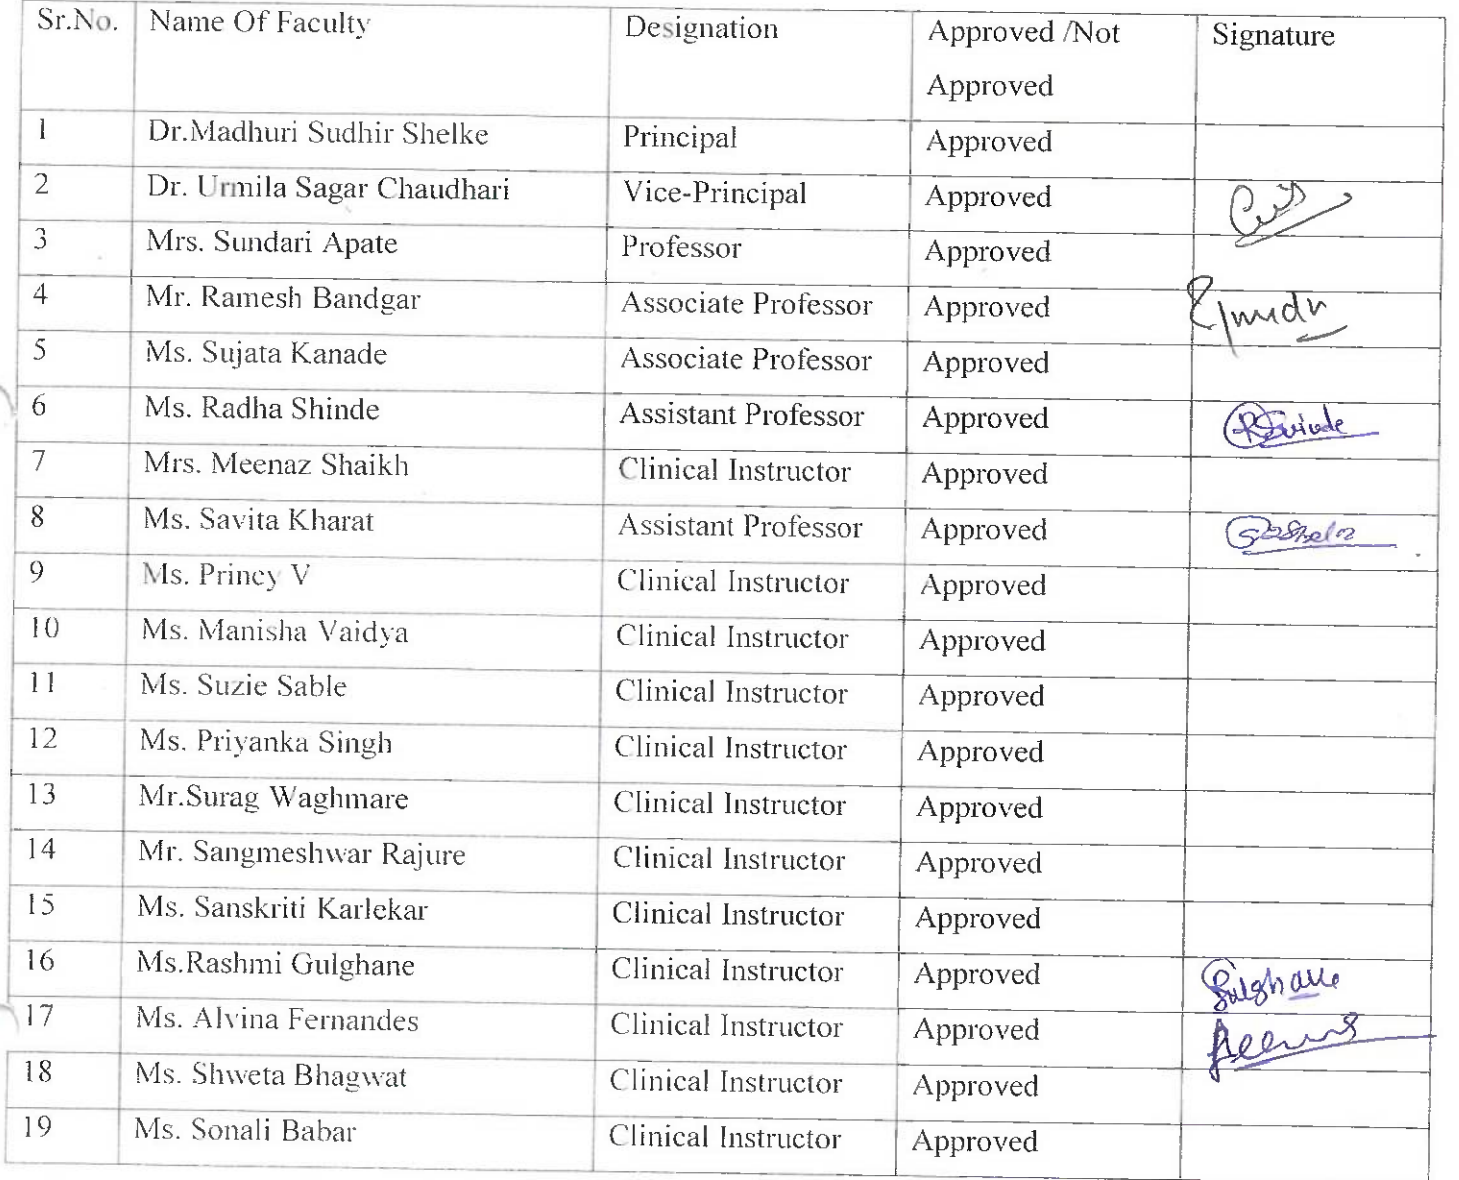 Sr.No. Name Of Faculty Designation Approved /Not Approved Signature
1 Dr.Madhuri Sudhir Shelke Principal Approved
2 Dr. Urmila Sagar Chaudhari Vice-Principal Approved
3 Mrs. Sundari Apate Professor Approved
4 Mr. Ramesh Bandgar Associate Professor Approved
5 Ms. Sujata Kanade Associate Professor Approved
6 Ms. Radha Shinde Assistant Professor Approved
7 Mrs. Meenaz Shaikh Clinical Instructor Approved
8 Ms. Savita Kharat Assistant Professor Approved
9 Ms. Princy V Clinical Instructor Approved
10 Ms. Manisha Vaidya Clinical Instructor Approved
11 Ms. Suzie Sable Clinical Instructor Approved
12 Ms. Priyanka Singh Clinical Instructor Approved
13 Mr.Surag Waghmare Clinical Instructor Approved
14 Mr. Sangmeshwar Rajure Clinical Instructor Approved
15 Ms. Sanskriti Karlekar Clinical Instructor Approved
16 Ms.Rashmi Gulghane Clinical Instructor Approved Gulghane
17 Ms. Alvina Fernandes Clinical Instructor Approved
18 Ms. Shweta Bhagwat Clinical Instructor Approved
19 Ms. Sonali Babar Clinical Instructor Approved